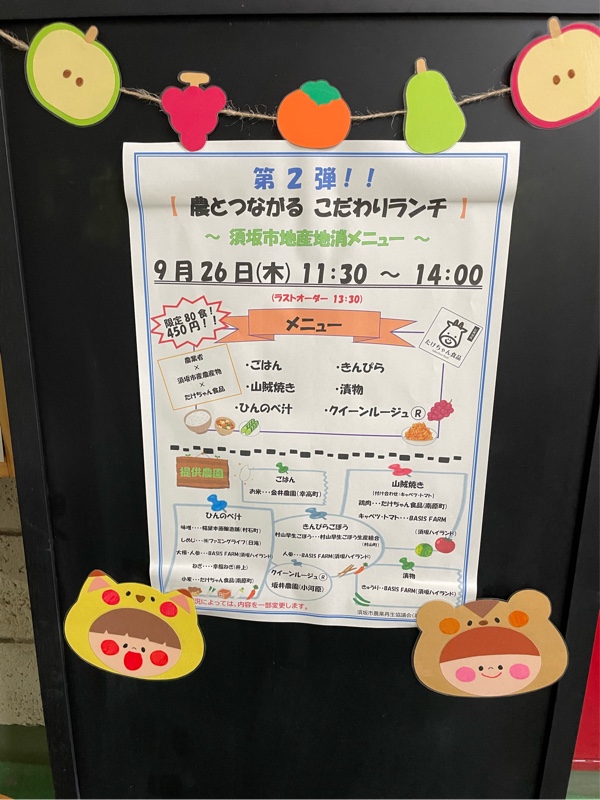 第2弾！！
【 農とつながる こだわりランチ 】
～ 須坂市地産地消メニュー ～
9月26日(木) 11:30 ～ 14:00
(ラストオーダー 13:30)
限定80食！
450円！！
メニュー
たけちゃん食品
農業者
×
須坂市産農産物
×
たけちゃん食品
・ごはん
・きんぴら
・山賊焼き
・漬物
・ひんのべ汁
・クイーンルージュⓇ
提供農園
ごはん
お米･･･金井農園(幸高町)
山賊焼き
(付け合わせ：キャベツ・トマト)
鶏肉･･･たけちゃん食品(南原町)
キャベツ・トマト･･･BASIS FARM
(須坂ハイランド)
ひんのべ汁
しめじ･･･㈱ファミリーライフ(日滝)
大根・人参･･･BASIS FARM(須坂ハイランド)
ねぎ･･･幸福ねぎ(井上)
小麦･･･たけちゃん食品(南原町)
きんぴらごぼう
村山早生ごぼう･･･村山早生ごぼう生産組合
(村山町)
人参･･･BASIS FARM(須坂ハイランド)
クイーンルージュⓇ
坂井農園(小河原)
漬物
きゅうり･･･BASIS FARM(須坂ハイランド)
況によっては、内容を一部変更します。
須坂市農業再生協議会